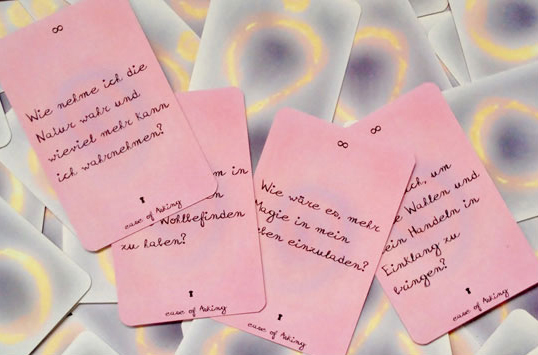 ∞
Wie nehme ich die
Natur wahr und
wieviel mehr kann
ich wahrnehmen?
ease of Asking
m in
Wohlbefinden
zu haben?
ease of Asking
∞
Wie wäre es, mehr
Magie in mein
ben einzuladen?
ease of Asking
∞
ich, um
e Wahlen und
ein Handeln in
Einklang zu
bringen?
ease of Asking